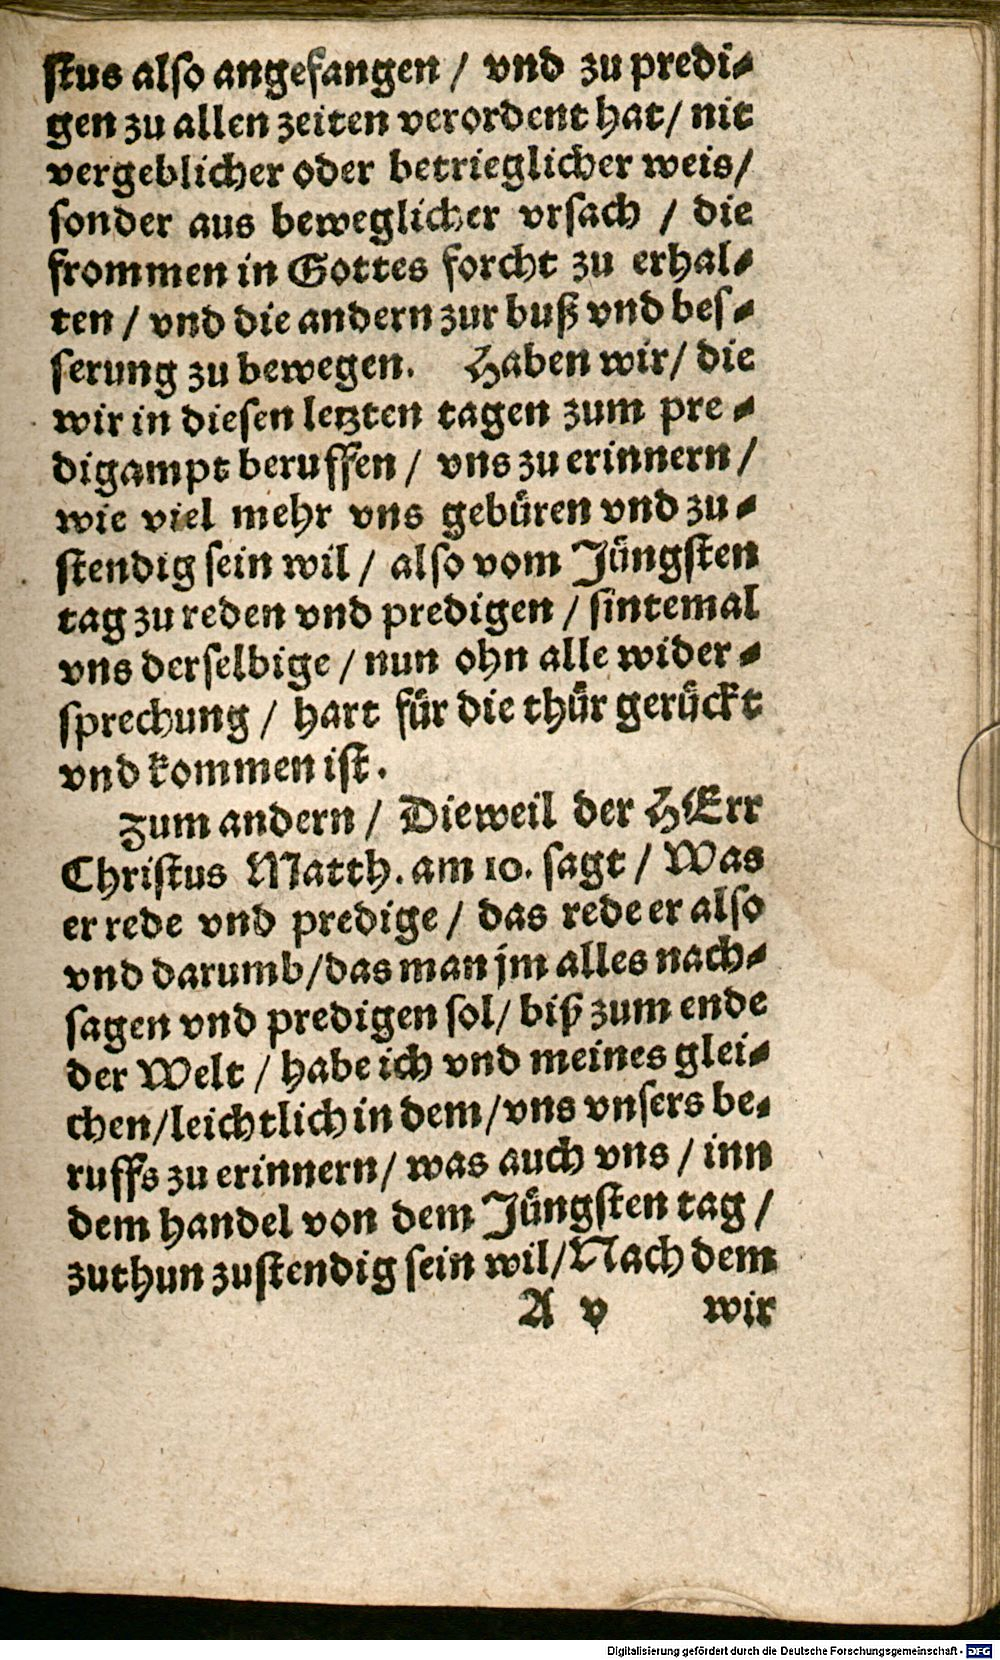 stus also angefangen / vnd zu predi-
gen zu allen zeiten verordent hat / nit
vergeblicher oder betrieglicher weis /
sonder aus beweglicher vrsach / die
frommen in Gottes forcht zu erhal-
ten / vnd die andern zur buß vnd bes-
serung zu bewegen. Haben wir / die
wir in diesen letzten tagen zum pre-
digampt beruffen / vns zu erinnern /
wie viel mehr vns gebüren vnd zu-
stendig sein wil / also vom Jüngsten
tag zu reden vnd predigen / sintemal
vns derselbige / nun ohn alle wider-
sprechung / hart für die thür gerückt
vnd kommen ist.
Zum andern / Dieweil der HErr
Christus Matth. am 10. sagt / Was
er rede vnd predige / das rede er also
vnd darumb / das man jm alles nach-
sagen vnd predigen sol / biß zum ende
der Welt / habe ich vnd meines glei-
chen / leichtlich in dem / vns vnsers be-
ruffs zu erinnern / was auch vns / inn
dem handel von dem Jüngsten tag /
zuthun zustendig sein wil / Nach dem
A v wir
Digitalisierung gefördert durch die Deutsche Forschungsgemeinschaft - DFG